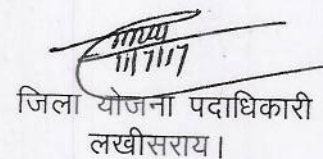 11/7/17
जिला योजना पदाधिकारी
लखीसराय।